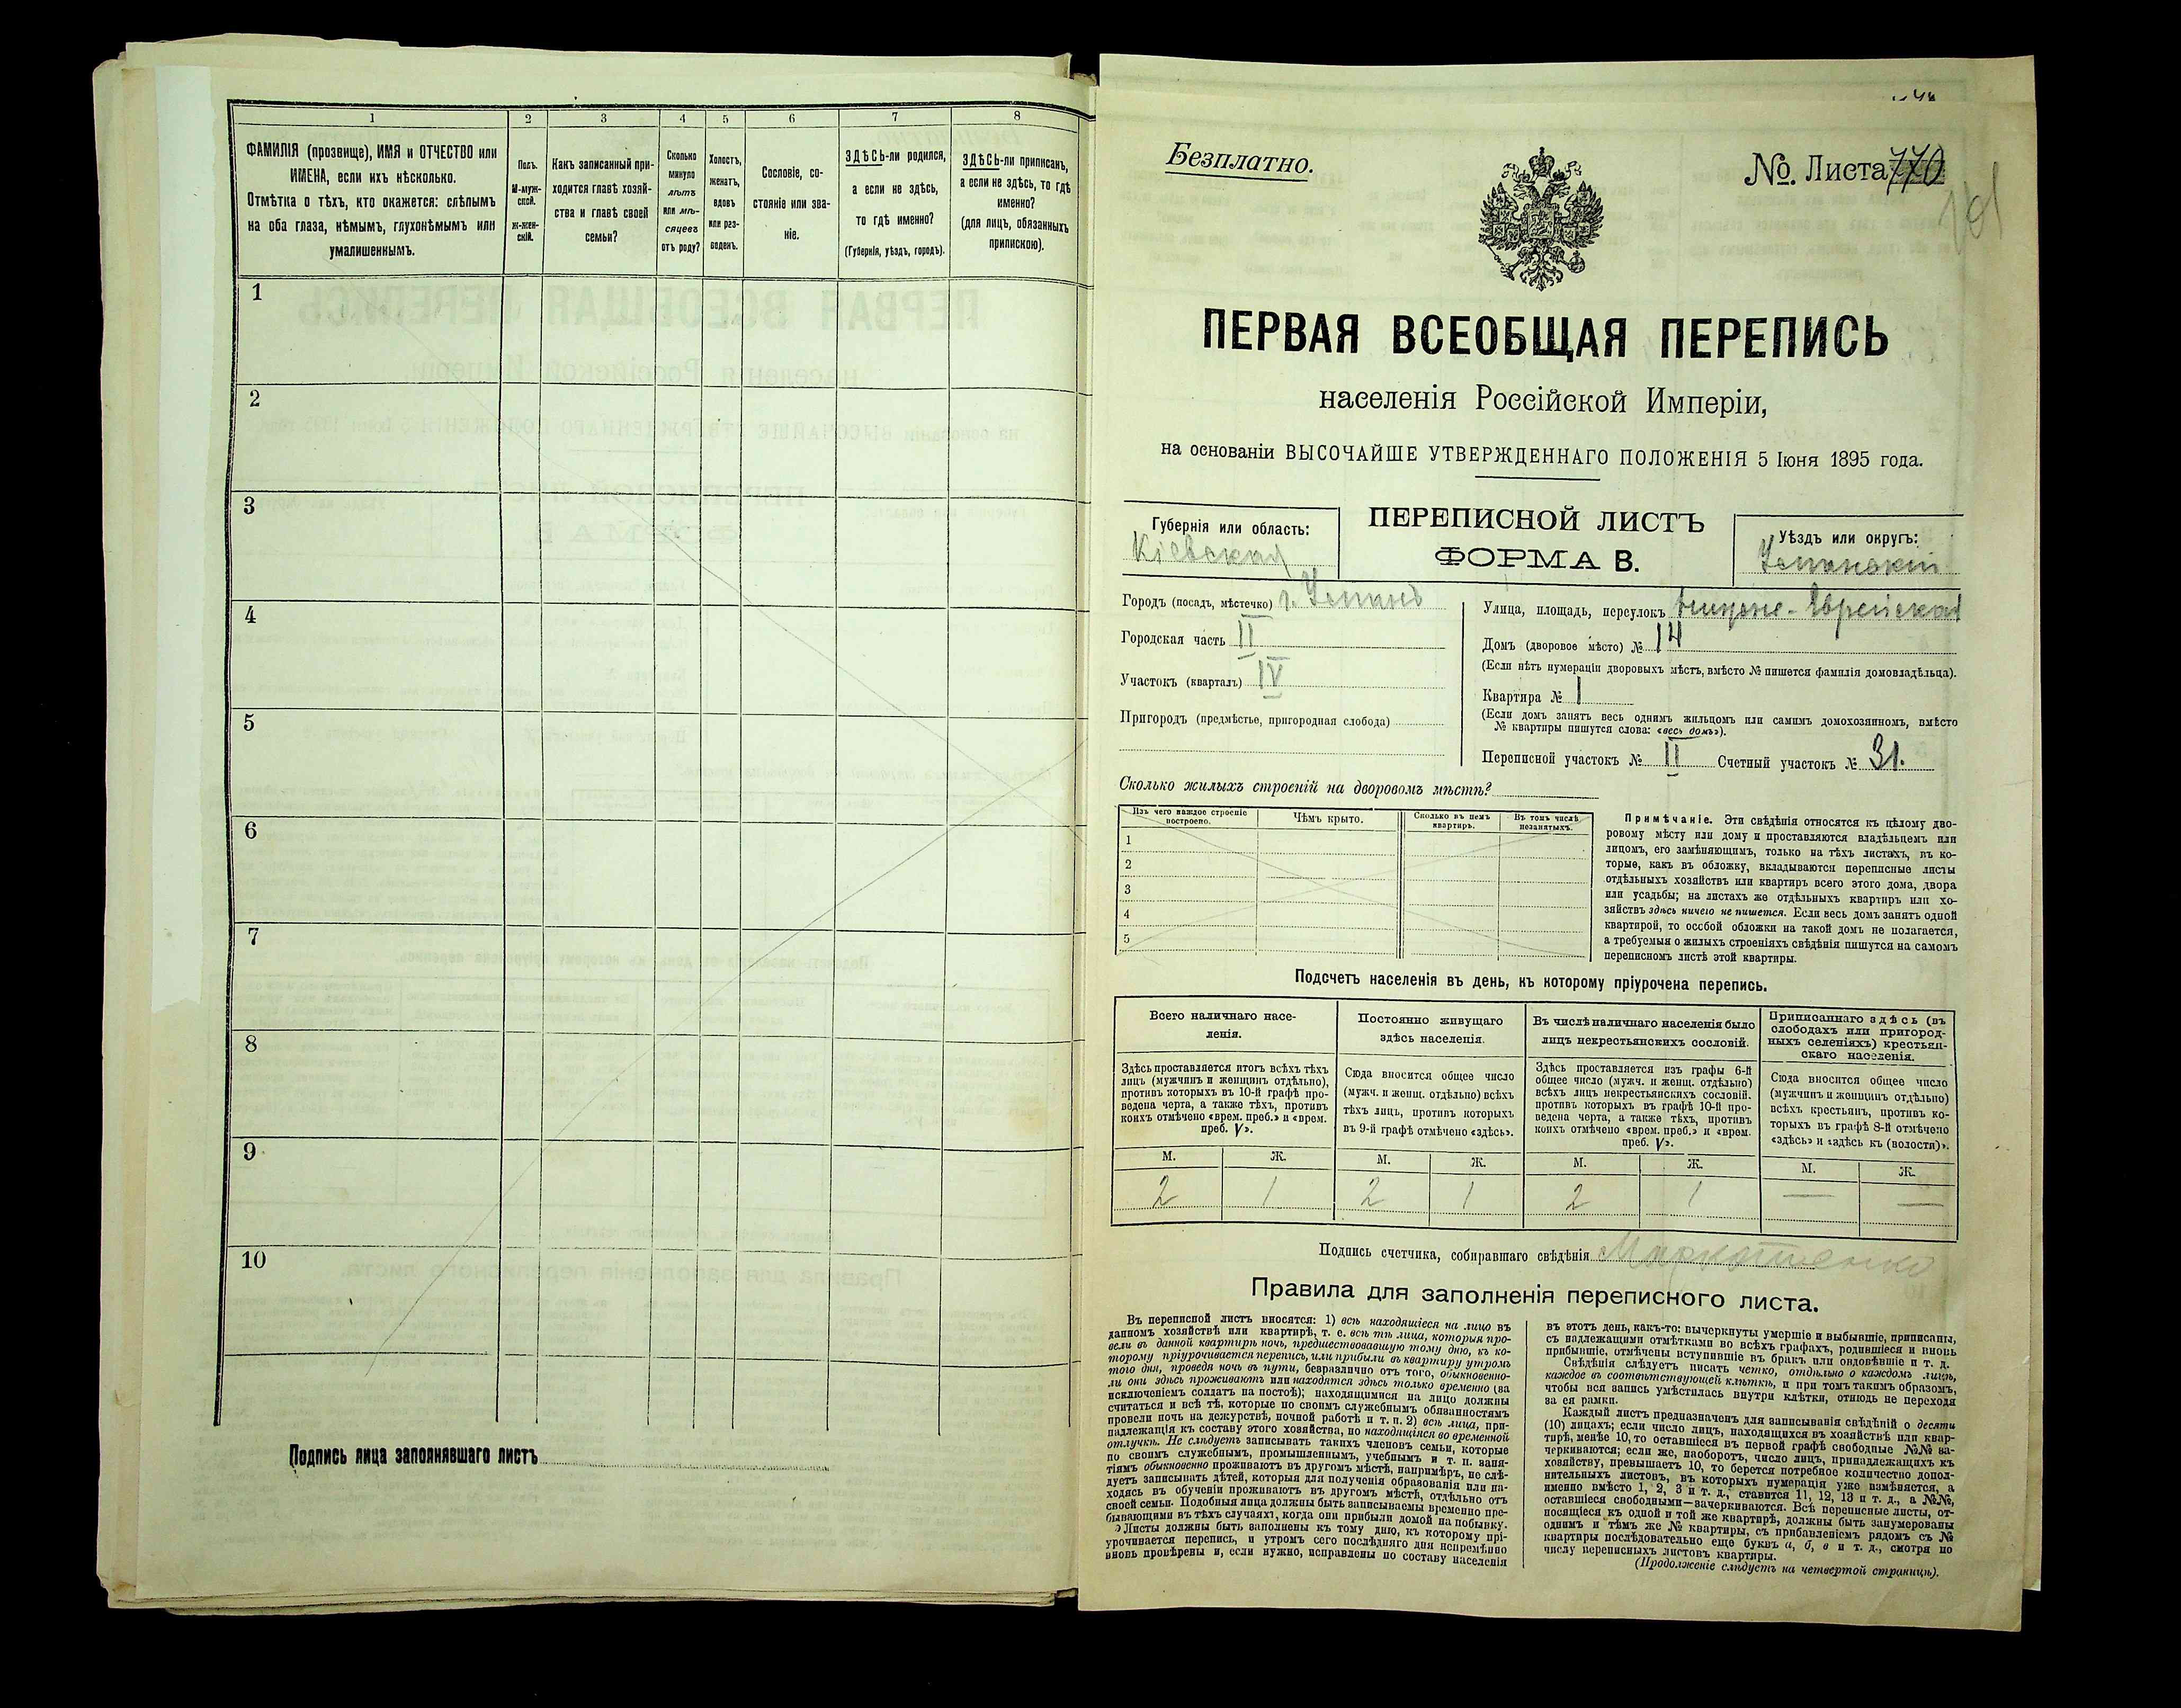 1 2 3 4 5 6 7 8
ФАМИЛІЯ (прозвище), ИМЯ и ОТЧЕСТВО или
ИМЕНА, если ихъ нѣсколько.
Отмѣтка о тѣхъ, кто окажется: слѣпымъ
на оба глаза, нѣмымъ, глухонѣмымъ или
умалишеннымъ.
Полъ.
М-муж-
ской.
Ж-жен-
скій.
Какъ записанный при-
ходится главѣ хозяй-
ства и главѣ своей
семьи?
Сколько
минуло
лѣтъ
или мѣ-
сяцевъ
отъ роду?
Холостъ,
женатъ,
вдовъ
или раз-
веденъ.
Сословіе, со-
стояніе или зва-
ніе.
ЗДѢСЬ-ли родился,
а если не здѣсь,
то гдѣ именно?
(Губернія, уѣздъ, городъ).
ЗДѢСЬ-ли приписанъ,
а если не здѣсь, то гдѣ
именно?
(для лицъ, обязанныхъ
припискою).
1
2
3
4
5
6
7
8
9
10
Подпись лица заполнявшаго листъ
Безплатно.
№. Листа 770
ПЕРВАЯ ВСЕОБЩАЯ ПЕРЕПИСЬ
населенія Россійской Имперіи,
на основаніи ВЫСОЧАЙШЕ УТВЕРЖДЕННАГО ПОЛОЖЕНІЯ 5 Іюня 1895 года.
Губернія или область:
Кіевская
ПЕРЕПИСНОЙ ЛИСТЪ
ФОРМА В.
Уѣздъ или округъ:
Уманскій
Городъ (посадъ, мѣстечко) г. Умань
Городская часть II
Участокъ (кварталъ) IV
Пригородъ (предмѣстье, пригородная слобода)
Улица, площадь, переулокъ Нижне-Еврейская
Домъ (дворовое мѣсто) № 14
(Если нѣтъ нумераціи дворовыхъ мѣстъ, вмѣсто № пишется фамилія домовладѣльца).
Квартира № 1
(Если домъ занятъ весь однимъ жильцомъ или самимъ домохозяиномъ, вмѣсто
№ квартиры пишутся слова: «весь домъ»).
Переписной участокъ № II Счетный участокъ № 31.
Сколько жилыхъ строеній на дворовомъ мѣстѣ?
Изъ чего каждое строеніе
построено.
Чѣмъ крыто.
Сколько въ немъ
квартиръ.
Въ томъ числѣ
незанятыхъ.
1
2
3
4
5
Примѣчаніе. Эти свѣдѣнія относятся къ цѣлому дво-
ровому мѣсту или дому и проставляются владѣльцемъ или
лицомъ, его замѣняющимъ, только на тѣхъ листахъ, въ ко-
торые, какъ въ обложку, вкладываются переписные листы
отдѣльныхъ хозяйствъ или квартиръ всего этого дома, двора
или усадьбы; на листахъ же отдѣльныхъ квартиръ или хо-
зяйствъ здѣсь ничего не пишется. Если весь домъ занятъ одной
квартирой, то особой обложки на такой домъ не полагается,
а требуемыя о жилыхъ строеніяхъ свѣдѣнія пишутся на самомъ
переписномъ листѣ этой квартиры.
Подсчетъ населенія въ день, къ которому пріурочена перепись.
Всего наличнаго насе-
ленія.
Здѣсь проставляется итогъ всѣхъ тѣхъ
лицъ (мужчинъ и женщинъ отдѣльно),
противъ которыхъ въ 10-й графѣ про-
ведена черта, а также тѣхъ, противъ
коихъ отмѣчено «врем. преб.» и «врем.
преб. V».
Постоянно живущаго
здѣсь населенія.
Сюда вносится общее число
(мужч. и женщ. отдѣльно) всѣхъ
тѣхъ лицъ, противъ которыхъ
въ 9-й графѣ отмѣчено «здѣсь».
Въ числѣ наличнаго населенія было
лицъ некрестьянскихъ сословій.
Здѣсь проставляется изъ графы 6-й
общее число (мужч. и женщ. отдѣльно)
всѣхъ лицъ некрестьянскихъ сословій,
противъ которыхъ въ графѣ 10-й про-
ведена черта, а также тѣхъ, противъ
коихъ отмѣчено «врем. преб.» и «врем.
преб. V».
Приписаннаго здѣсь (въ
слободахъ или пригород-
ныхъ селеніяхъ) крестьян-
скаго населенія.
Сюда вносится общее число
(мужчинъ и женщинъ отдѣльно)
всѣхъ крестьянъ, противъ ко-
торыхъ въ графѣ 8-й отмѣчено
«здѣсь» и «здѣсь къ (волости)».
М. Ж. М. Ж. М. Ж. М. Ж.
2 1 2 1 2 1 — —
Подпись счетчика, собиравшаго свѣдѣнія
Правила для заполненія переписного листа.
Въ переписной листъ вносятся: 1) всѣ находящіеся на лицо въ
данномъ хозяйствѣ или квартирѣ, т. е. всѣ тѣ лица, которыя про-
вели въ данной квартирѣ ночь, предшествовавшую тому дню, къ ко-
торому пріурочивается перепись, или прибыли въ квартиру утромъ
того дня, проведя ночь въ пути, безразлично отъ того, обыкновенно-
ли они здѣсь проживаютъ или находятся здѣсь только временно (за
исключеніемъ солдатъ на постоѣ); находящимися на лицо должны
считаться и всѣ тѣ, которые по своимъ служебнымъ обязанностямъ
провели ночь на дежурствѣ, ночной работѣ и т. п. 2) всѣ лица, при-
надлежащія къ составу этого хозяйства, но находящіяся во временной
отлучкѣ. Не слѣдуетъ записывать такихъ членовъ семьи, которые
по своимъ служебнымъ, промышленнымъ, учебнымъ и т. п. заня-
тіямъ обыкновенно проживаютъ въ другомъ мѣстѣ, напримѣръ, не слѣ-
дуетъ записывать дѣтей, которыя для полученія образованія или на-
ходясь въ обученіи проживаютъ въ другомъ мѣстѣ, отдѣльно отъ
своей семьи. Подобныя лица должны быть записываемы временно пре-
бывающими въ тѣхъ случаяхъ, когда они прибыли домой на побывку.
Листы должны быть заполнены къ тому дню, къ которому прі-
урочивается перепись, и утромъ сего послѣдняго дня непремѣнно
вновь провѣрены и, если нужно, исправлены по составу населенія
въ этотъ день, какъ-то: вычеркнуты умершіе и выбывшіе, приписаны,
съ надлежащими отмѣтками во всѣхъ графахъ, родившіеся и вновь
прибывшіе, отмѣчены вступившіе въ бракъ или овдовѣвшіе и т. д.
Свѣдѣнія слѣдуетъ писать четко, отдѣльно о каждомъ лицѣ,
каждое въ соотвѣтствующей клѣткѣ, и при томъ такимъ образомъ,
чтобы вся запись умѣстилась внутри клѣтки, отнюдь не переходя
за ея рамки.
Каждый листъ предназначенъ для записыванія свѣдѣній о десяти
(10) лицахъ; если число лицъ, находящихся въ хозяйствѣ или квар-
тирѣ, менѣе 10, то оставшіеся въ первой графѣ свободные №№ за-
черкиваются; если же, наоборотъ, число лицъ, принадлежащихъ къ
хозяйству, превышаетъ 10, то берется потребное количество допол-
нительныхъ листовъ, въ которыхъ нумерація уже измѣняется, а
именно вмѣсто 1, 2, 3 и т. д., ставится 11, 12, 13 и т. д., а №№,
оставшіеся свободными—зачеркиваются. Всѣ переписные листы, от-
носящіеся къ одной и той же квартирѣ, должны быть занумерованы
однимъ и тѣмъ же № квартиры, съ прибавленіемъ рядомъ съ №
квартиры послѣдовательно еще буквъ а, б, в и т. д., смотря по
числу переписныхъ листовъ квартиры.
(Продолженіе слѣдуетъ на четвертой страницѣ).